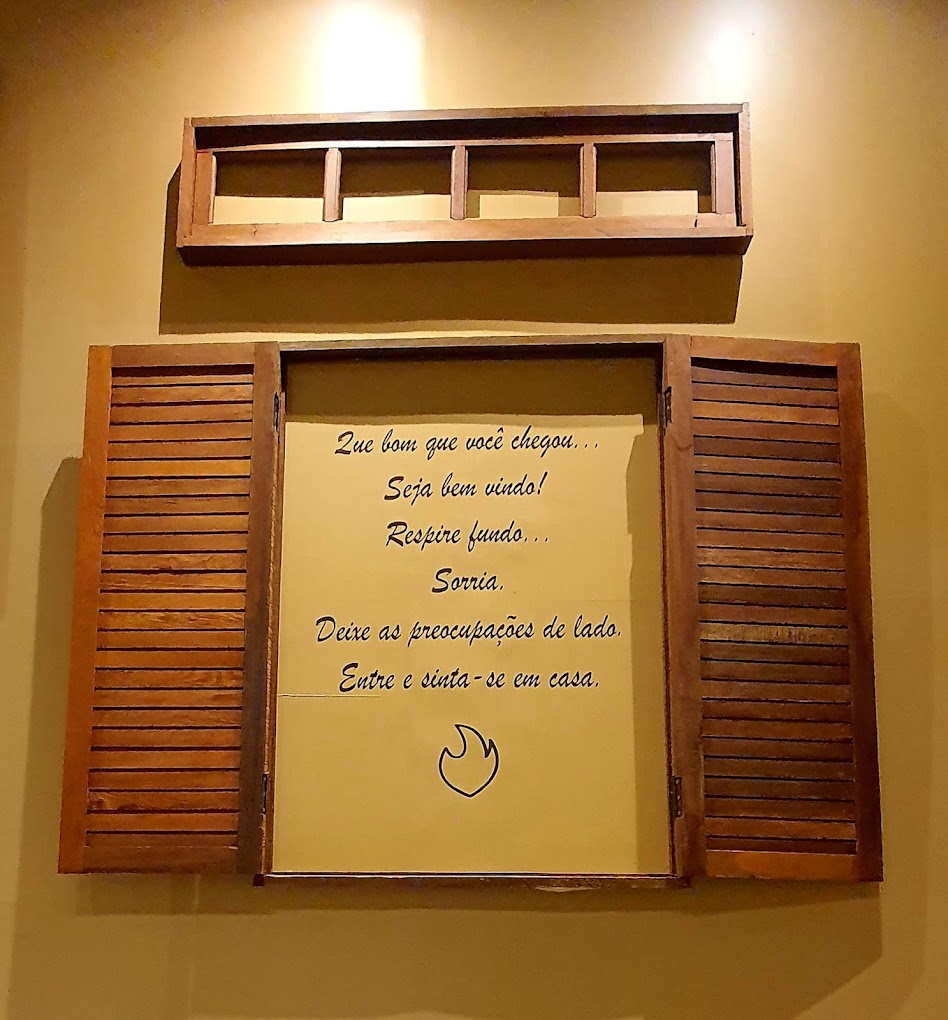 Que bom que você chegou...
Seja bem vindo!
Respire fundo...
Sorria.
Deixe as preocupações de lado.
Entre e sinta-se em casa.